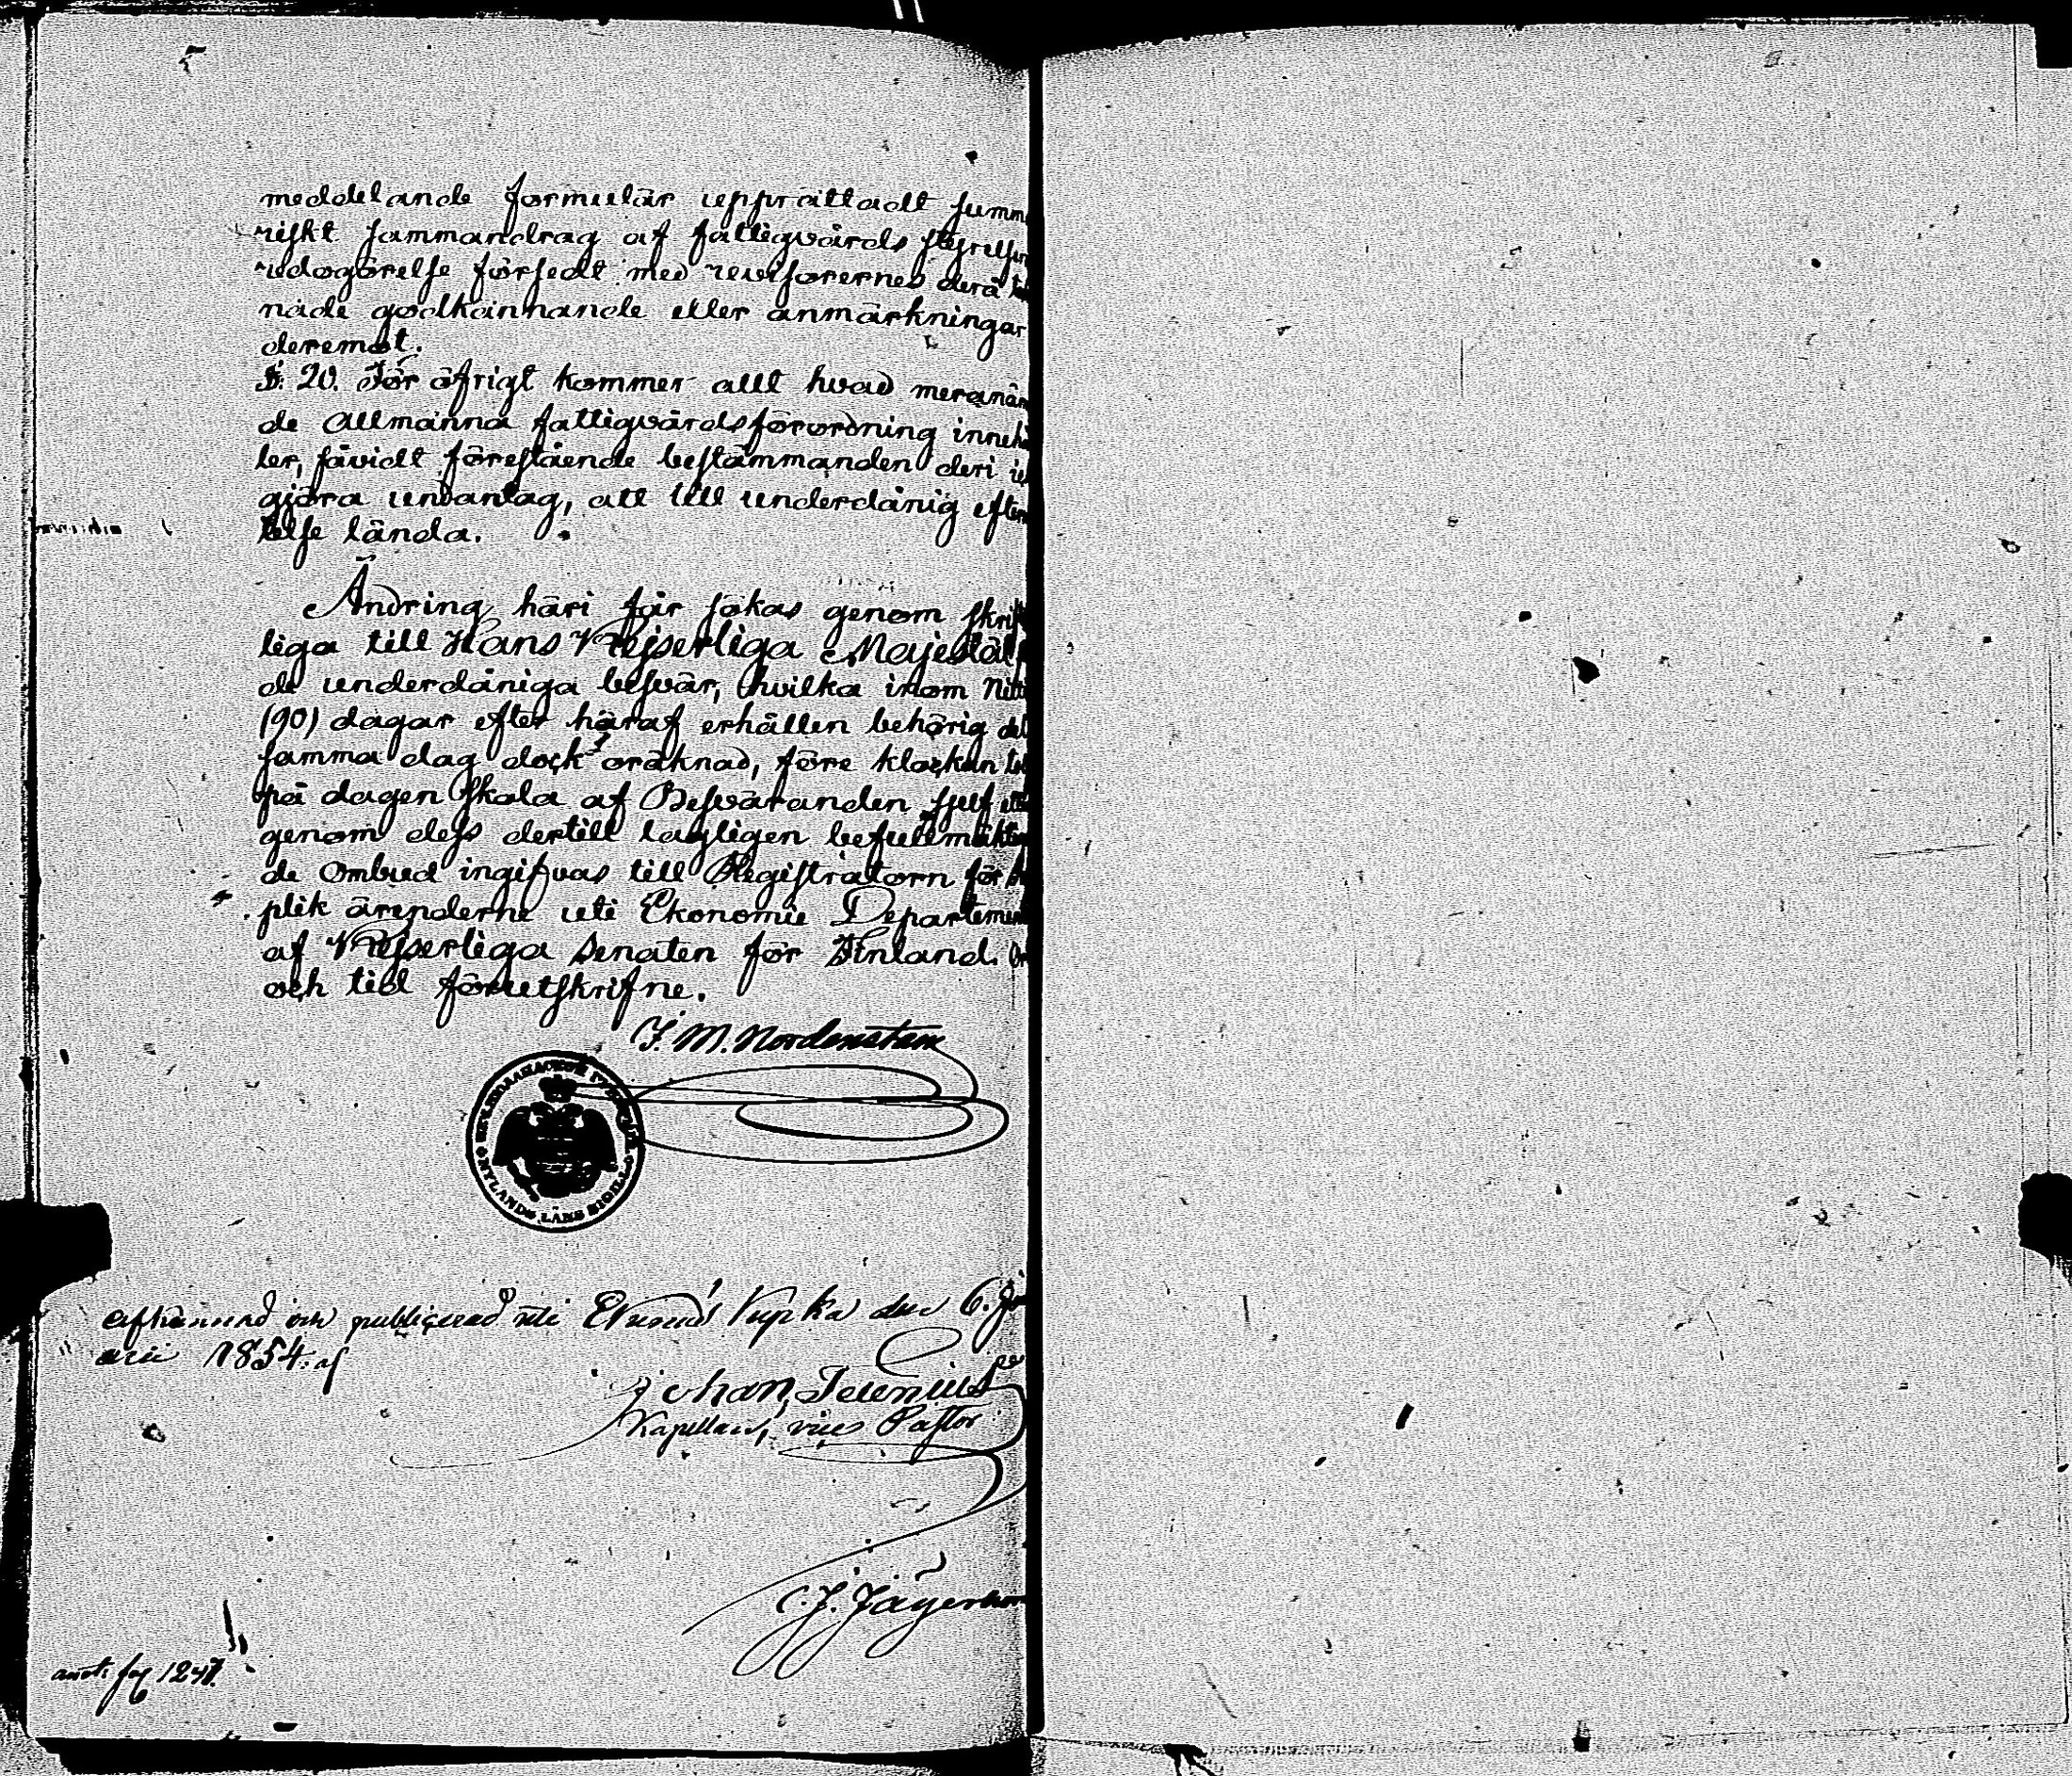 meddelande formulär upprättadt summa
riskt sammandrag af fattigvårds styrelsen
redogörelse försedt med revisorernes derå
nade godkännande eller anmärkningar
deremot.
§. 20. För öfrigt kommer allt hvad meranäm
de Allmänna fattigvårdsförordning innehå
ler, såvidt förestående bestämmanden deri ic
gjöra undantag, att till underdånig efter
telse lända.
Ändring häri får sökas genom skrift
liga till Hans Kejserliga Majestät
de underdåniga besvär, hvilka inom Nitti
(90) dagar efter häraf erhållen behörig del
samma dag dock oräknad, före klockan tol
på dagen skola af Besväranden sjelf eller
genom dess dertill lagligen befullmäktiga
de Ombud ingifvas till Registratorn för Su
plik ärenderne uti Ekonomie Departement
af Kejserliga Senaten för Finland. Or
och tid förutskrifne.
J. M. Nordenstam
NYLANDS LÄNS SIGILL
afkunnad och publicerad uti Ekenäs Kyrka den 6. Janu
arii 1854. af
Johan Telenius
Kapellan, vice Pastor
C. J. Jägerhorn
ant. fol 1247.